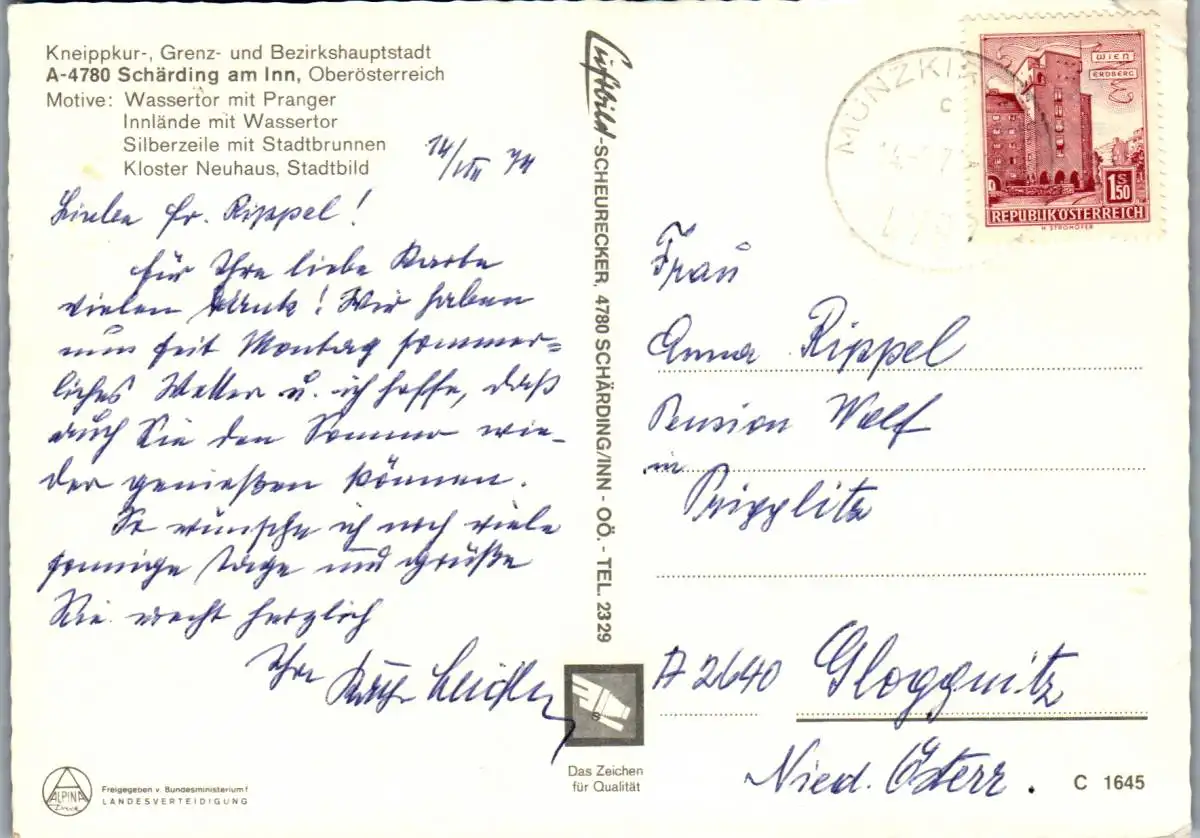 Kneippkur-, Grenz- und Bezirkshauptstadt
A-4780 Schärding am Inn, Oberösterreich
Motive: Wassertor mit Pranger
Innlände mit Wassertor
Silberzeile mit Stadtbrunnen
Kloster Neuhaus, Stadtbild
14/VII 74
Liebe Fr. Rippel!
Für Ihre liebe Karte
vielen Dank! Wir haben
nun seit Montag sommer=
liches Wetter u. ich hoffe, daß
auch Sie den Sommer wie-
der genießen können.
So wünsche ich noch viele
sonnige Tage und grüße
Sie recht herzlich
Ihre
Luftbild-SCHEURECKER, 4780 SCHÄRDING/INN - OÖ. - TEL. 2329
S
Das Zeichen
für Qualität
MÜNZKIR
c
WIEN
ERDBERG
1 S 50
REPUBLIK ÖSTERREICH
H. STROHOFER
Frau
Anna Rippel
Pension Wolf
in
Prigglitz
A 2640 Gloggnitz
Nied. Österr.
C 1645
ALPINA
Druck
Freigegeben v. Bundesministerium f
LANDESVERTEIDIGUNG